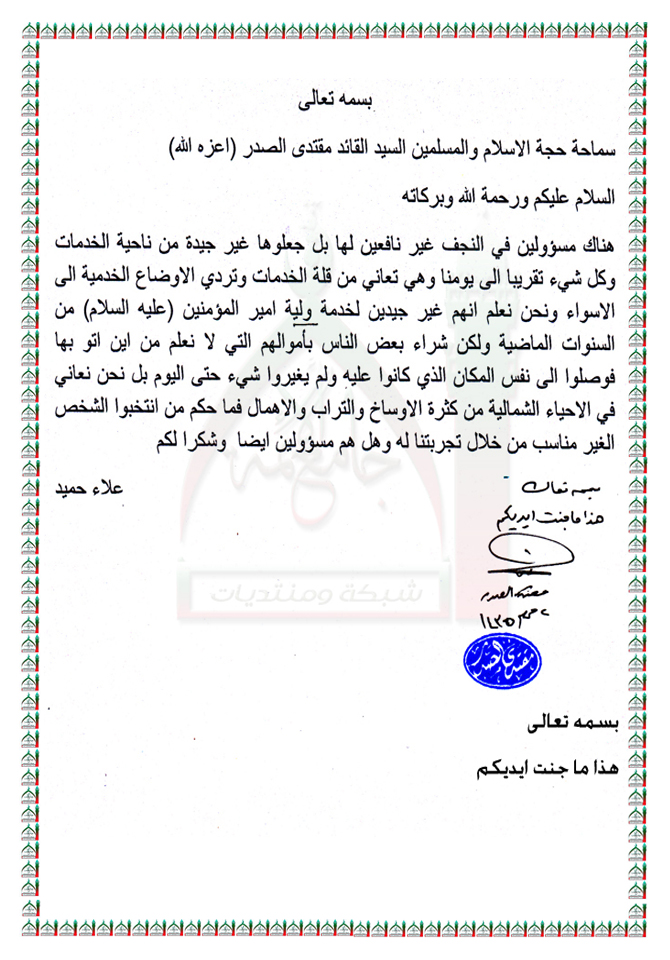 بسمه تعالى
سماحة حجة الاسلام والمسلمين السيد القائد مقتدى الصدر (اعزه الله)
السلام عليكم ورحمة الله وبركاته
هناك مسؤولين في النجف غير نافعين لها بل جعلوها غير جيدة من ناحية الخدمات
وكل شيء تقريبا الى يومنا وهي تعاني من قلة الخدمات وتردي الاوضاع الخدمية الى
الاسواء ونحن نعلم انهم غير جيدين لخدمة ولية امير المؤمنين (عليه السلام) من
السنوات الماضية ولكن شراء بعض الناس بأموالهم التي لا نعلم من اين اتو بها
فوصلوا الى نفس المكان الذي كانوا عليه ولم يغيروا شيء حتى اليوم بل نحن نعاني
في الاحياء الشمالية من كثرة الاوساخ والتراب والاهمال فما حكم من انتخبوا الشخص
الغير مناسب من خلال تجربتنا له وهل هم مسؤولين ايضا وشكرا لكم
علاء حميد
بسمه تعالى
هذا ما جنت ايديكم
مقتدى الصدر
٢ محرم ١٤٣٥
مقتدى الصدر
جامع الأئمة
شبكة ومنتديات
بسمه تعالى
هذا ما جنت ايديكم